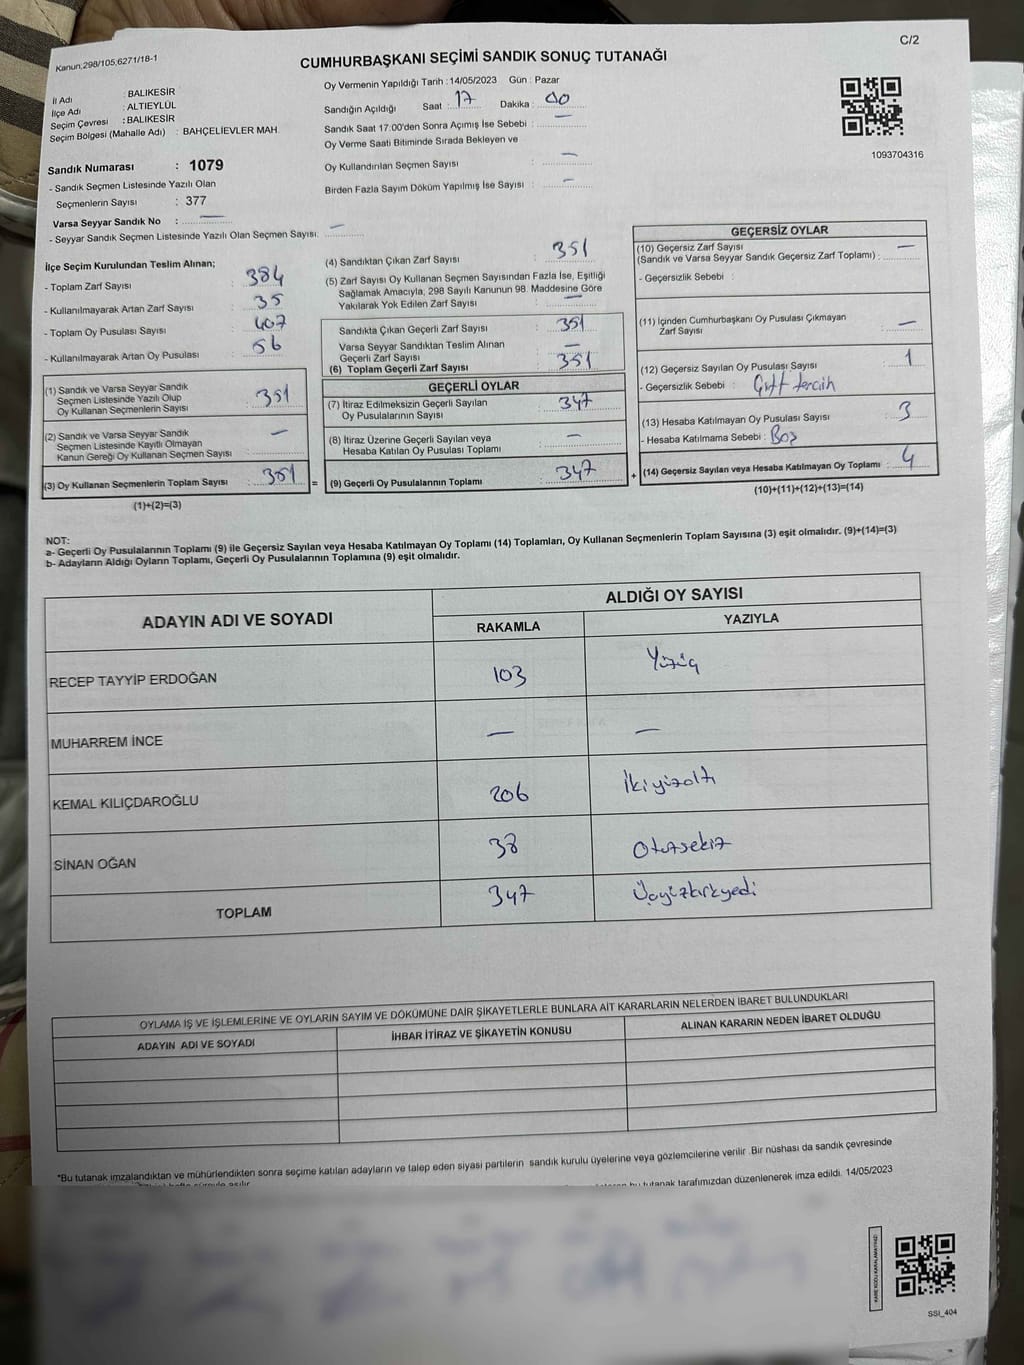 Kanun;298/105,6271/18-1
C/2
CUMHURBAŞKANI SEÇİMİ SANDIK SONUÇ TUTANAĞI
İl Adı : BALIKESİR
İlçe Adı : ALTIEYLÜL
Seçim Çevresi : BALIKESİR
Seçim Bölgesi (Mahalle Adı) : BAHÇELİEVLER MAH.
Sandık Numarası : 1079
- Sandık Seçmen Listesinde Yazılı Olan
Seçmenlerin Sayısı : 377
Varsa Seyyar Sandık No : —
- Seyyar Sandık Seçmen Listesinde Yazılı Olan Seçmen Sayısı: —
Oy Vermenin Yapıldığı Tarih : 14/05/2023 Gün : Pazar
Sandığın Açıldığı Saat : 17 Dakika : 00
Sandık Saat 17:00'den Sonra Açımış İse Sebebi : —
Oy Verme Saati Bitiminde Sırada Bekleyen ve
Oy Kullandırılan Seçmen Sayısı : —
Birden Fazla Sayım Döküm Yapılmış İse Sayısı : —
1093704316
İlçe Seçim Kurulundan Teslim Alınan;
- Toplam Zarf Sayısı : 384
- Kullanılmayarak Artan Zarf Sayısı : 35
- Toplam Oy Pusulası Sayısı : 407
- Kullanılmayarak Artan Oy Pusulası : 56
(1) Sandık ve Varsa Seyyar Sandık
Seçmen Listesinde Yazılı Olup
Oy Kullanan Seçmenlerin Sayısı : 351
(2) Sandık ve Varsa Seyyar Sandık
Seçmen Listesinde Kayıtlı Olmayan
Kanun Gereği Oy Kullanan Seçmen Sayısı : —
(3) Oy Kullanan Seçmenlerin Toplam Sayısı : 351 =
(1)+(2)=(3)
(4) Sandıktan Çıkan Zarf Sayısı : 351
(5) Zarf Sayısı Oy Kullanan Seçmen Sayısından Fazla İse, Eşitliği
Sağlamak Amacıyla, 298 Sayılı Kanunun 98. Maddesine Göre
Yakılarak Yok Edilen Zarf Sayısı : —
Sandıkta Çıkan Geçerli Zarf Sayısı : 351
Varsa Seyyar Sandıktan Teslim Alınan
Geçerli Zarf Sayısı : —
(6) Toplam Geçerli Zarf Sayısı : 351
GEÇERLİ OYLAR
(7) İtiraz Edilmeksizin Geçerli Sayılan
Oy Pusulalarının Sayısı : 347
(8) İtiraz Üzerine Geçerli Sayılan veya
Hesaba Katılan Oy Pusulası Toplamı : —
(9) Geçerli Oy Pusulalarının Toplamı : 347 +
GEÇERSİZ OYLAR
(10) Geçersiz Zarf Sayısı
(Sandık ve Varsa Seyyar Sandık Geçersiz Zarf Toplamı) : —
- Geçersizlik Sebebi :
(11) İçinden Cumhurbaşkanı Oy Pusulası Çıkmayan
Zarf Sayısı : —
(12) Geçersiz Sayılan Oy Pusulası Sayısı : 1
- Geçersizlik Sebebi : Çift tercih
(13) Hesaba Katılmayan Oy Pusulası Sayısı : 3
- Hesaba Katılmama Sebebi : Boş
(14) Geçersiz Sayılan veya Hesaba Katılmayan Oy Toplamı : 4
(10)+(11)+(12)+(13)=(14)
NOT:
a- Geçerli Oy Pusulalarının Toplamı (9) ile Geçersiz Sayılan veya Hesaba Katılmayan Oy Toplamı (14) Toplamları, Oy Kullanan Seçmenlerin Toplam Sayısına (3) eşit olmalıdır. (9)+(14)=(3)
b- Adayların Aldığı Oyların Toplamı, Geçerli Oy Pusulalarının Toplamına (9) eşit olmalıdır.
ADAYIN ADI VE SOYADI ALDIĞI OY SAYISI
RAKAMLA YAZIYLA
RECEP TAYYİP ERDOĞAN 103 Yüzüç
MUHARREM İNCE — —
KEMAL KILIÇDAROĞLU 206 İkiyüzaltı
SİNAN OĞAN 38 Otuzsekiz
TOPLAM 347 Üçyüzkırkyedi
OYLAMA İŞ VE İŞLEMLERİNE VE OYLARIN SAYIM VE DÖKÜMÜNE DAİR ŞİKAYETLERLE BUNLARA AİT KARARLARIN NELERDEN İBARET BULUNDUKLARI
ADAYIN ADI VE SOYADI İHBAR İTİRAZ VE ŞİKAYETİN KONUSU ALINAN KARARIN NEDEN İBARET OLDUĞU
*Bu tutanak imzalandıktan ve mühürlendikten sonra seçime katılan adayların ve talep eden siyasi partilerin sandık kurulu üyelerine veya gözlemcilerine verilir .Bir nüshası da sandık çevresinde
bu tutanak tarafımızdan düzenlenerek imza edildi. 14/05/2023
KARE KODU KARALAMAYINIZ!
SSI_404